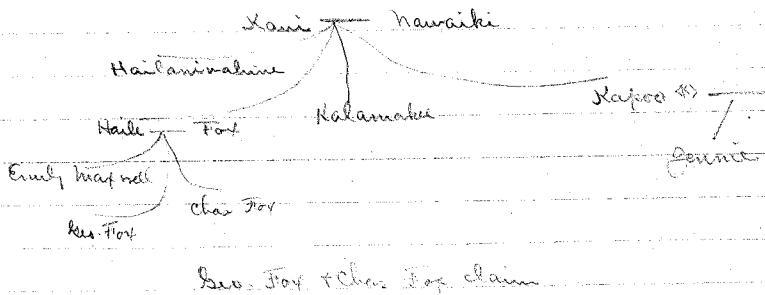 Kaui — Nawaiki
Hailaniwahine
Kapoo (k) —
Haile — Fox Kalamakee
Jennie
Emily Maxwell
Chas Fox
Geo. Fox
Geo. Fox + Chas Fox claim